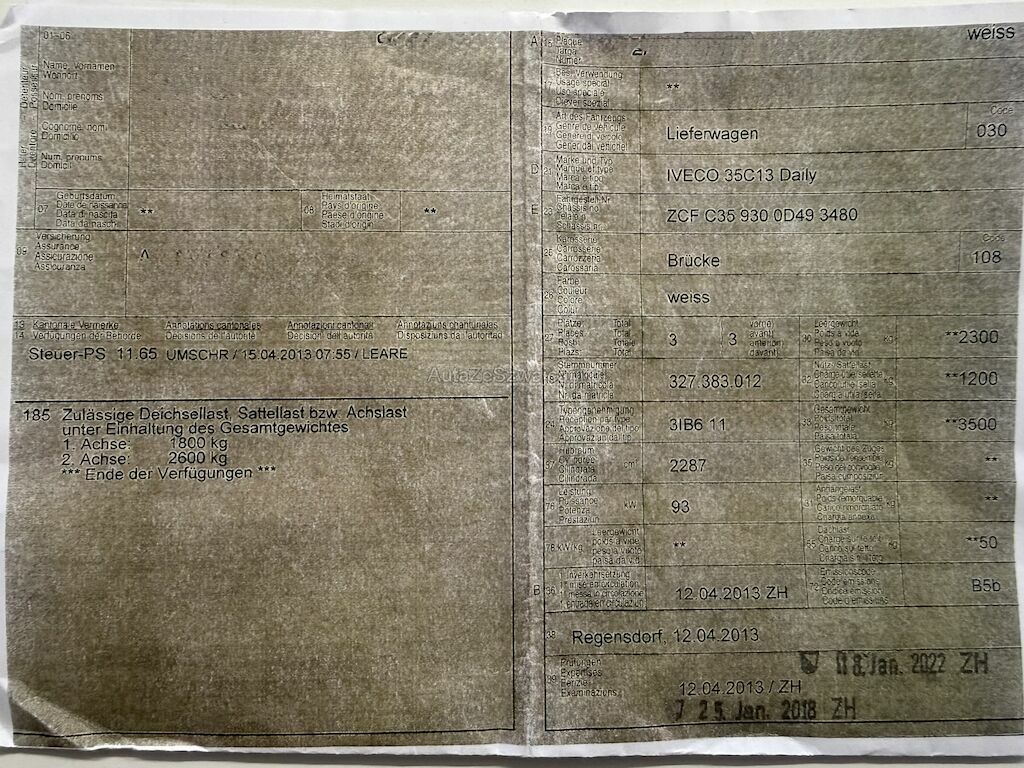 01-06
Name, Vornamen
Wohnort
Nom, prénoms
Domicile
Cognome, nomi
Domicilio
Num, prenums
Domicil
07 Geburtsdatum
Date de naissance
Data di nascita
Data da nasch.
**
08 Heimatstaat
Pays d'origine
Paese d'origine
Stadi d'origin
**
09 Versicherung
Assurance
Assicurazione
Assicuranza
13 Kantonale Vermerke Annotations cantonales Annotazioni cantonali Annotaziuns chantunalas
14 Verfügungen der Behörde Décisions de l'autorité Decisioni dell'autorità Disposiziuns da l'autoritad
Steuer-PS 11.65 UMSCHR / 15.04.2013 07:55 / LEARE
185 Zulässige Deichsellast, Sattellast bzw. Achslast
unter Einhaltung des Gesamtgewichtes
1. Achse: 1800 kg
2. Achse: 2600 kg
*** Ende der Verfügungen ***
A 15 Plaque
Targa
Numer
weiss
17 Bes. Verwendung
Usage spécial
Uso speciale
Diever spezial
**
19 Art des Fahrzeugs
Genre de véhicule
Genere di veicolo
Gener dal vehichel
Lieferwagen
Code
030
D 21 Marke und Typ
Marque et type
Marca e tipo
Marca e tip
IVECO 35C13 Daily
E 23 Fahrgestell-Nr.
Châssis no
Telaio n.
Schassis nr.
ZCF C35 930 0D49 3480
25 Karosserie
Carrosserie
Carrozzeria
Carossaria
Brücke
Code
108
26 Farbe
Couleur
Colore
Colur
weiss
27 Plätze Total
Places Total
Posti Totale
Plazs Total
3 / 3
vorne
avant
anteriori
davant
30 Leergewicht
Poids à vide
Peso a vuoto
Paisa da vid
kg
**2300
18 Stammnummer
No matricule
N. di matricola
Nr. da matricla
327.383.012
32 Nutz-/Sattellast
kg
**1200
24 Typengenehmigung
Réception par type
Approvazione del tipo
Approvaziun dal tip
3IB6 11
33 Gesamtgewicht
Poids total
Peso totale
Paisa totala
kg
**3500
37 Hubraum
Cylindrée
Cilindrata
Cilindrada
cm³
2287
35 Gewicht des Zuges
Poids de l'ensemble
Peso del convoglio
Paisa cumposiziun
kg
**
76 Leistung
Puissance
Potenza
Prestaziun
kW
93
31 Anhängelast
Poids remorquable
Carico rimorchiato
Chargia annexa
kg
**
78 kW/kg
Leergewicht
poids à vide
peso a vuoto
paisa da vid
**
55 Dachlast
Charge sur le toit
Carico sul tetto
Chargia sin il tetg
kg
**50
B 36 1. Inverkehrsetzung
1re mise en circulation
1a messa in circolazione
1. entrada en circulaziun
12.04.2013 ZH
72 Emissionscode
Code émissions
Codice emissioni
Code d'emissiuns
B5b
38 Regensdorf, 12.04.2013
39 Prüfungen
Expertises
Perizie
Examinaziuns
12.04.2013 / ZH
18. Jan. 2022 ZH
7 25. Jan. 2018 ZH